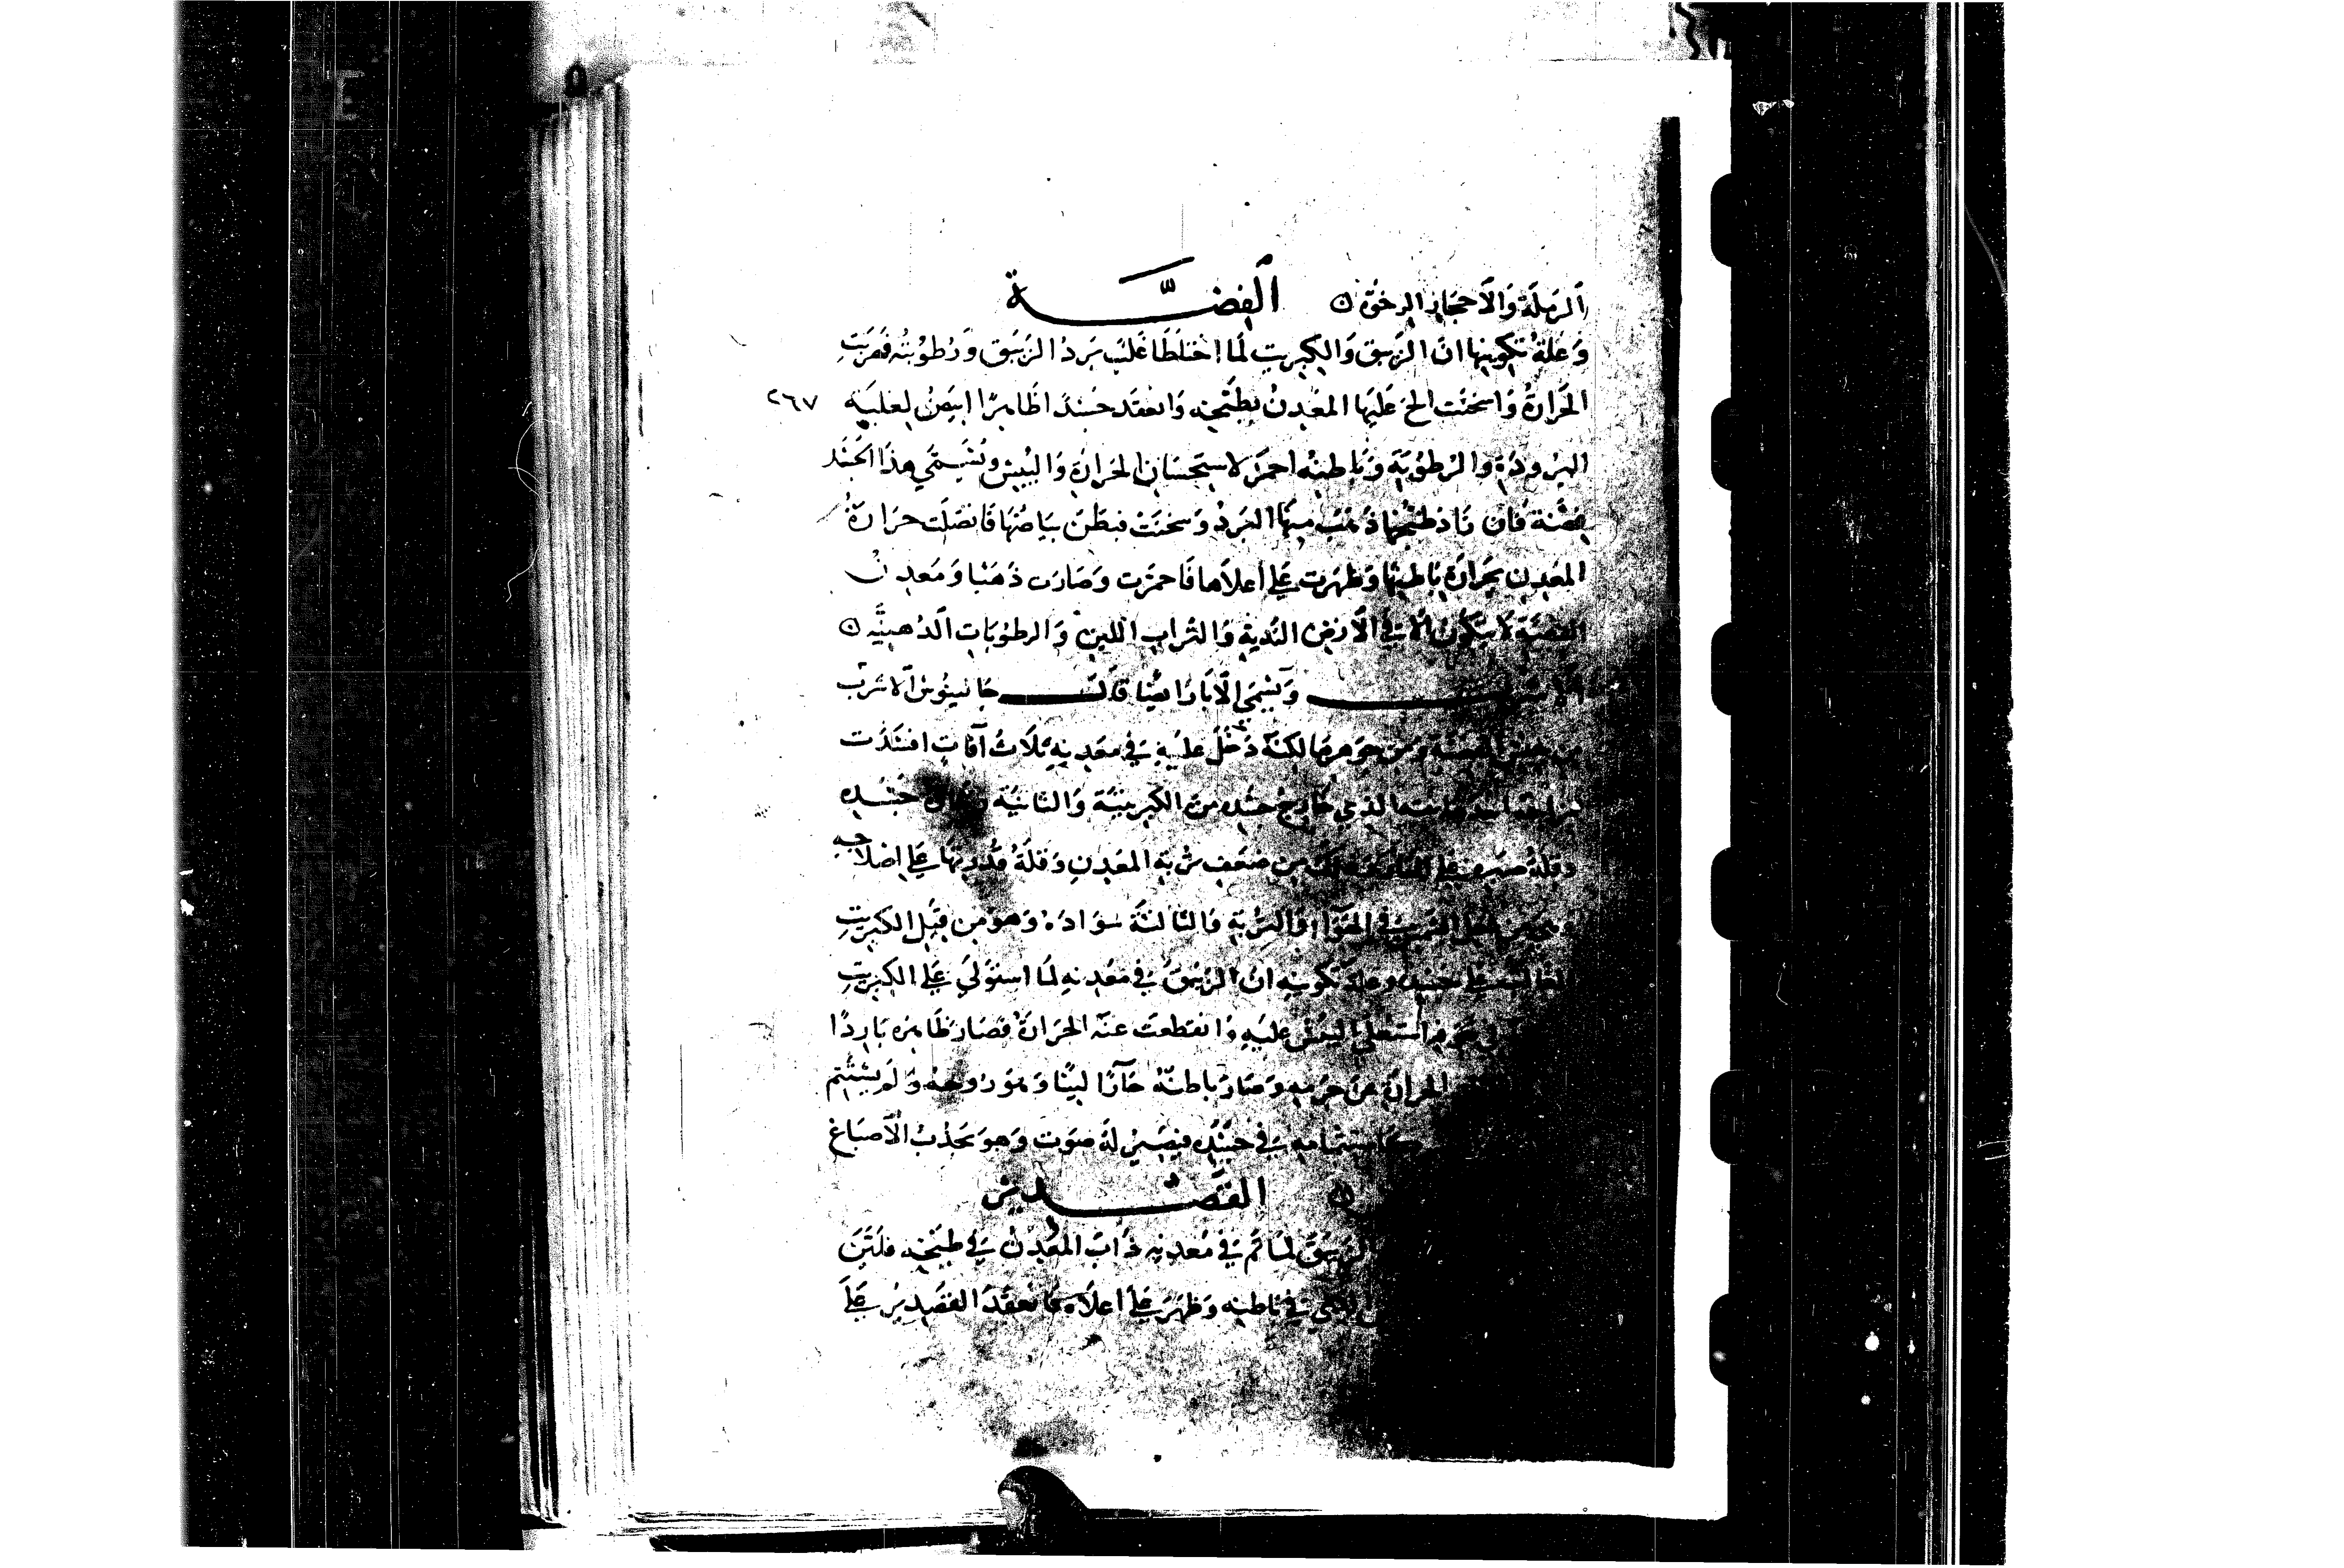 الرملة والاحجار الرخوة ۞ الفضة
وعلة تكوينها ان الزيبق والكبريت لما اختلطا غلب برد الزيبق ورطوبته فهربت
الحرارة واسخنت الح عليها المعدن بطبخه وانعقد جسدا ظاهرا ابيض لغلبة
٢٦٧
البرودة والرطوبة وباطنه احمر لاستجسان الحرارة واليبس ويسمى هذا الجسد
فضة فان زاد طبخها ذهب منها البرد وسخنت فبطن بياضها فاتصلت حرارة
المعدن بحرارة باطنها وظهرت على اعلاها فاحمرت وصارت ذهبا ومعدن
الفضة لا يتكون الا في الارض الندية والتراب اللين والرطوبات الدهنية ۞
الاسرب ويسمى الابار ايضا قال جالينوس الاسرب
من جنس الفضة ومن جوهرها لكنه دخل عليه في معدنه ثلاث آفات افسدت
الذي خارج جسده من الكبريتية والثانية جسده
وقلة صبره على النار وذلك من ضعف تربة المعدن وقلة قدرتها على اصلاحه
في الهواء والتربة والثالثة سواده وهو من قبل الكبريت
الغالب على جسده وعلة تكوينه ان الزيبق في معدنه لما استولى على الكبريت
استعلى اليبس عليه وانقطعت عنه الحرارة فصار ظاهره باردا
الحرارة عن جرمه وصار باطنه حارا لينا وهو روحه ولم يستتم
في جسده فيصير له صوت وهو يجذب الاصباغ
۞ القصدير
الزيبق لما تم في معدنه ذاب المعدن في طبخه فلين
الذي في باطنه وظهر على اعلاه فانعقد القصدير على